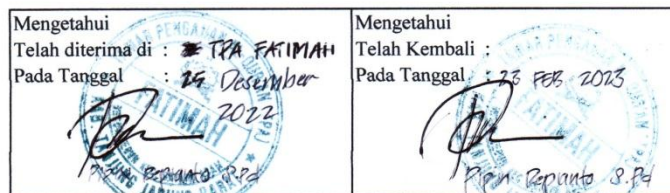 Mengetahui
Telah diterima di : TPA FATIMAH
Pada Tanggal : 25 Desember
2022
FATIMAH
S.Pd
Mengetahui
Telah Kembali :
Pada Tanggal : 23 FEB 2023
FATIMAH
S.Pd